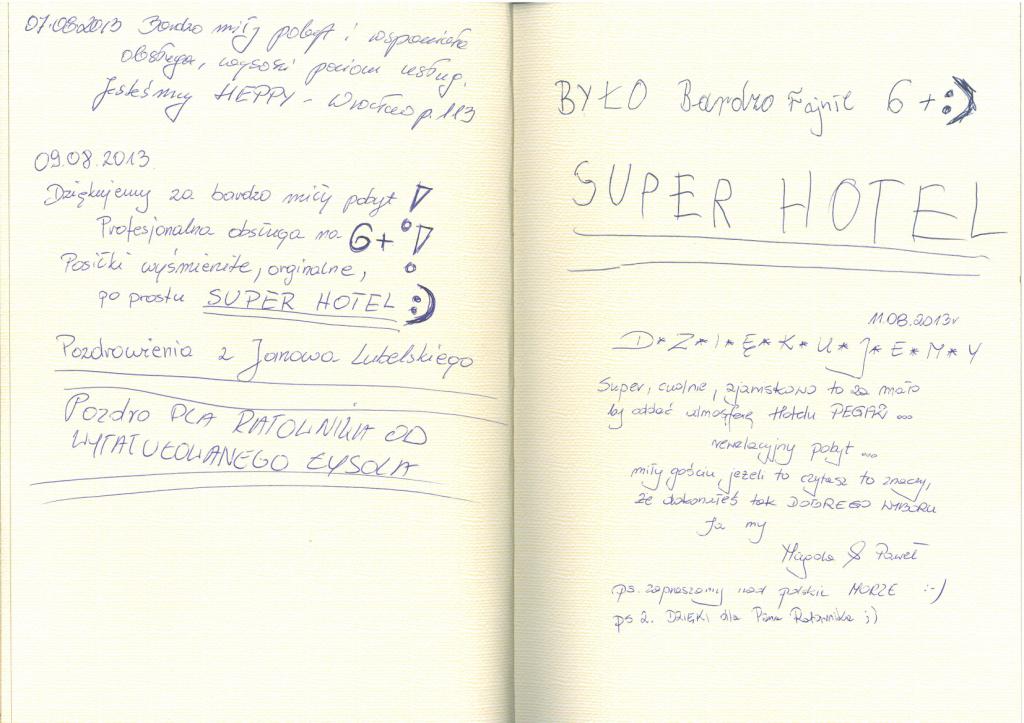 07.08.2013 Bardzo miły pobyt i wspaniała
obsługa, wysoki poziom usług.
Jesteśmy HEPPY - Wrocław p. 113
09.08.2013.
Dziękujemy za bardzo miły pobyt!
Profesjonalna obsługa na 6+!
Posiłki wyśmienite, orginalne,
po prostu SUPER HOTEL :)
Pozdrowienia z Janowa Lubelskiego
Pozdro DLA RATOWNIKA OD
WYTATUŁOWANEGO ŁYSOLA
BYŁO Bardzo Fajnie 6+ :)
SUPER HOTEL
11.08.2013r
D*Z*I*Ę*K*U*J*E*M*Y
Super, cudnie, zjamskowo to za mało
by oddać atmosferę Hotelu PEGAZ ...
rewelacyjny pobyt ...
miły gościu, jeżeli to czytasz to znaczy,
że dokonałeś tak DOBREGO WYBORU
Ja my
Magda & Paweł
ps. zapraszamy nad polskie MORZE :-)
ps 2. DZIĘKI dla Pana Ratownika ;)